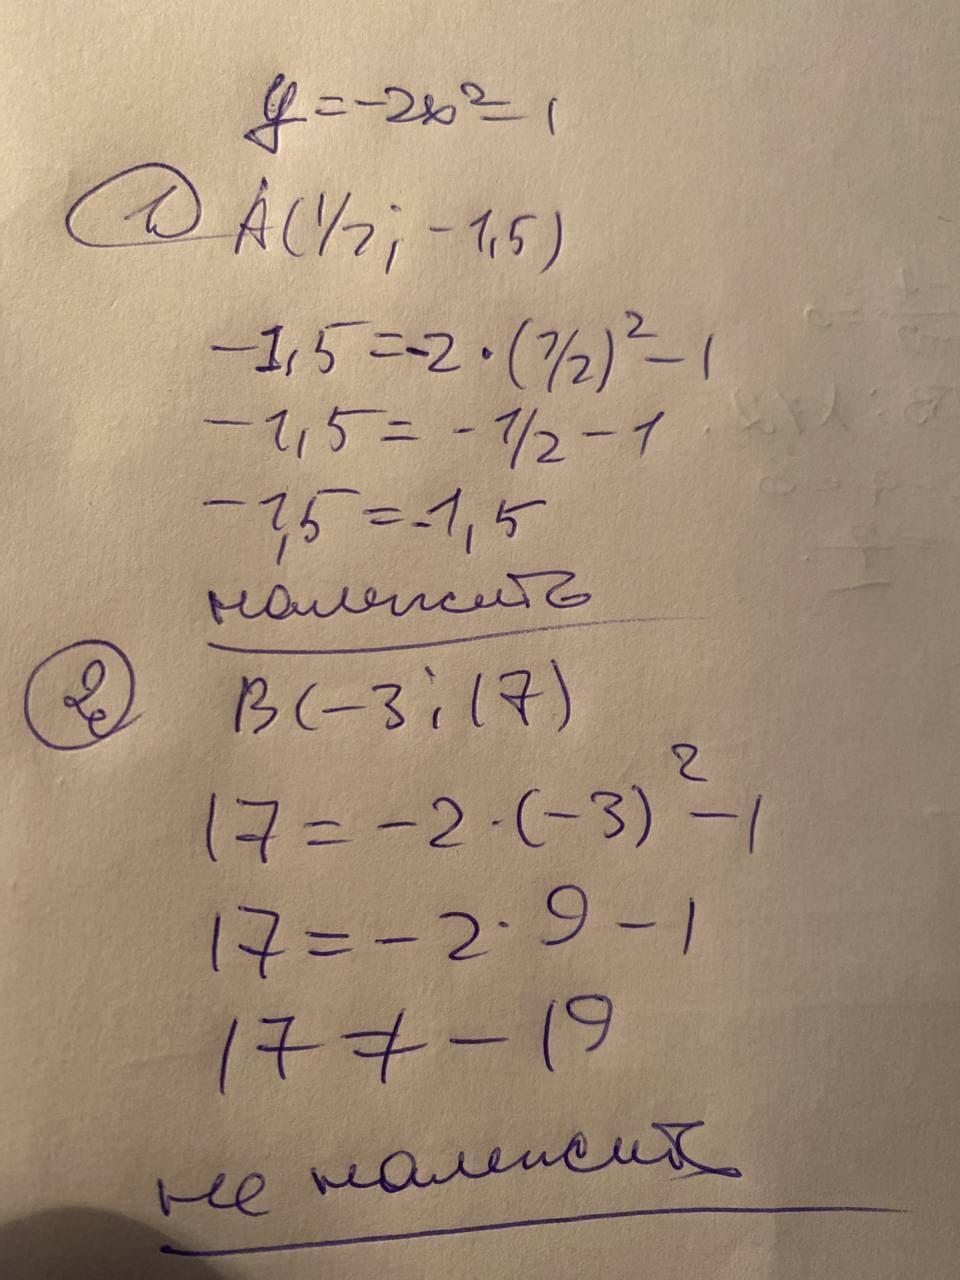 y = -2x² - 1
1. A(1/2; -1,5)
-1,5 = -2 · (1/2)² - 1
-1,5 = -1/2 - 1
-1,5 = -1,5
належить
2. B(-3; 17)
17 = -2 · (-3)² - 1
17 = -2 · 9 - 1
17 ≠ -19
не належить